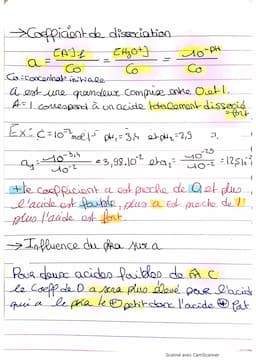 →Coefficient de dissociation
a = [A-]f / C0 = [H3O+] / C0 = 10^-pH / C0
C0: concentrat° initiale
a est une grandeur comprise entre 0 et 1.
A=1 correspond à un acide totalement dissocié
=fort
Ex: C=10^-2 mol.l^-1 pH1=3,4 et pH2=2,9
a1 = 10^-3,4 / 10^-2 = 3,98.10^-2 et a2 = 10^-2,9 / 10^-2 =
+ le coefficient a est proche de 0 et plus
l'acide est faible, plus a est proche de 1
plus l'acide est fort.
→ Influence du pka sur a
Pour deux acides faibles de m̂ C
le Coeff de D a sera plus élevé pour l'acide
qui a le pka le ⊕ petit donc l'acide ⊕ fort
Scanné avec CamScanner